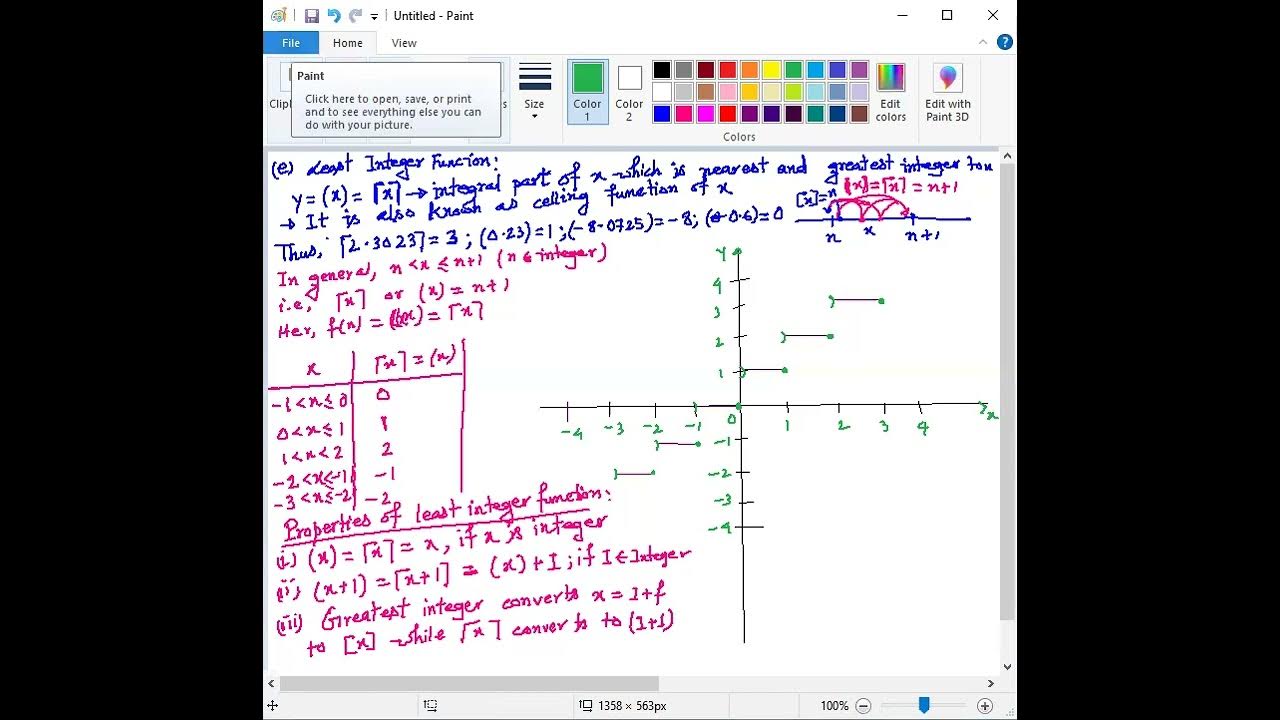 Untitled - Paint
File Home View
Paint
Click here to open, save, or print and to see everything else you can do with your picture.
Size
Color 1
Color 2
Edit colors
Edit with Paint 3D
Colors
(e) Least Integer Funcion:
y = (x) = ⌈x⌉ → integral part of x which is nearest and greatest integer to x
→ It is also known as celling function of x
Thus, ⌈2.3023⌉ = 3 ; (0.23) = 1 ; (-8.0725) = -8; (-0.6) = 0
[x]=n (x)=⌈x⌉ = n+1
n x n+1
In general, n < x ≤ n+1 (n ∈ integer)
i.e, ⌈x⌉ or (x) = n+1
Her, f(x) = (x) = ⌈x⌉
x ⌈x⌉ = (x)
-1 < x ≤ 0 0
0 < x ≤ 1 1
1 < x < 2 2
-2 < x ≤ -1 -1
-3 < x ≤ -2 -2
Properties of least integer function:
(i) (x) = ⌈x⌉ = x, if x is integer
(ii) (x+1) = ⌈x+1⌉ = (x) + I ; if I ∈ Integer
(iii) Greatest integer converts x = I+f
to [x] while ⌈x⌉ converts to (I+1)
y
4
3
2
1
-4 -3 -2 -1 0 1 2 3 4 x
-1
-2
-3
-4
1358 × 563px
100%